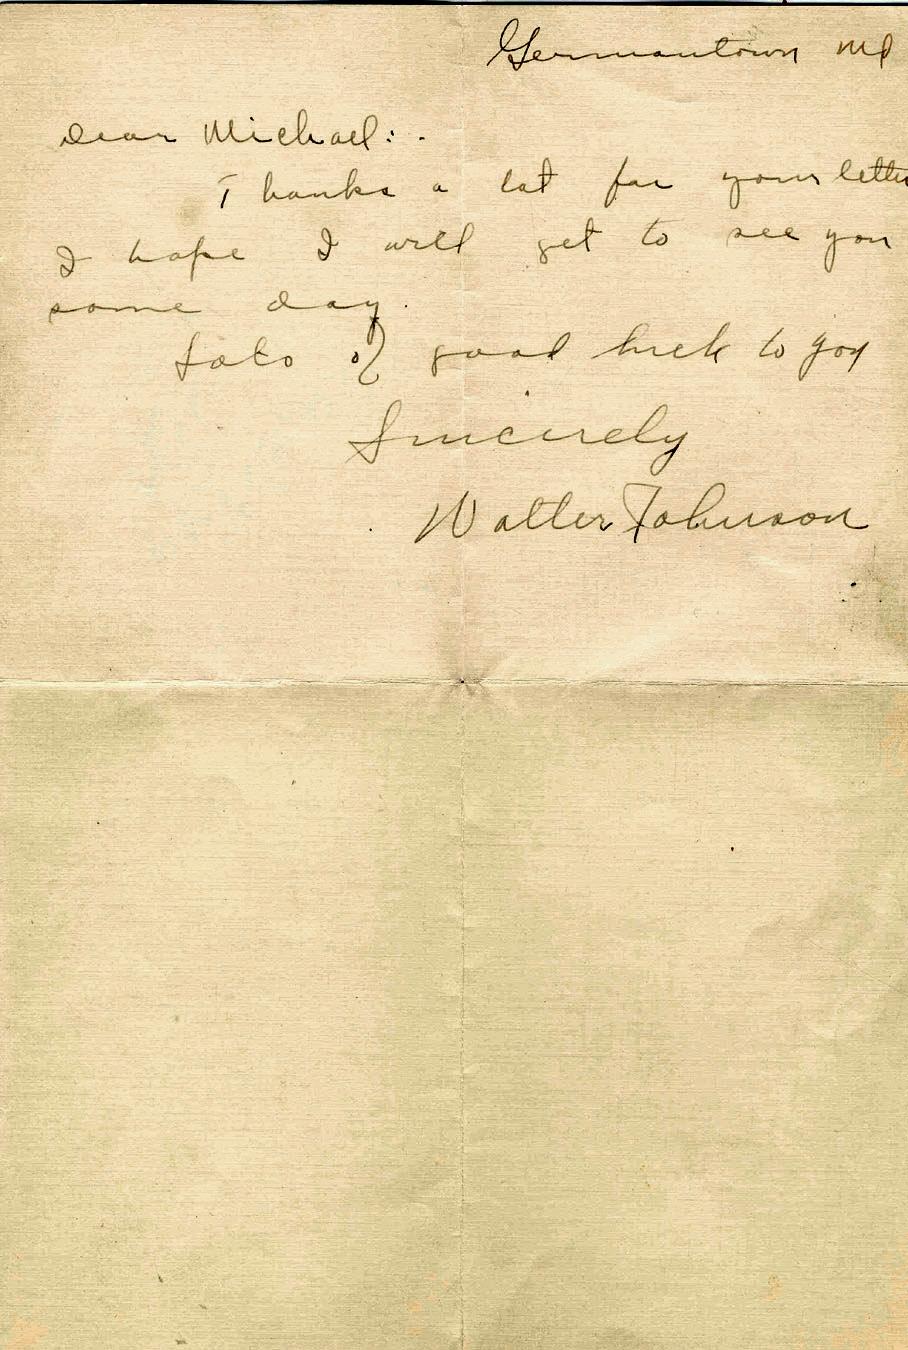 Germantown Md
Dear Michael:-
Thanks a lot for your letter
I hope I will get to see you
some day.
Lots of good luck to you
Sincerely
Walter Johnson